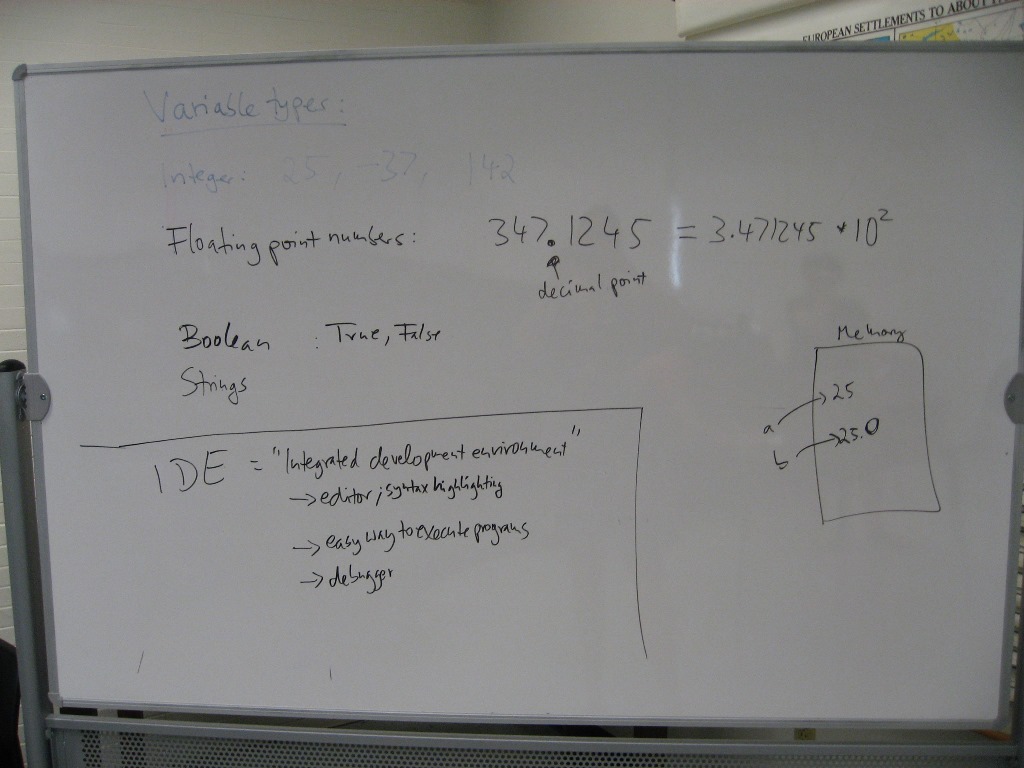 EUROPEAN SETTLEMENTS TO ABOUT
Variable types:
Integer: 25, -37, 142
Floating point numbers: 347.1245 = 3.471245 * 10²
decimal point
Boolean : True, False
Strings
Memory
a 25
b 25.0
IDE = "Integrated development environment"
→ editor; syntax highlighting
→ easy way to execute programs
→ debugger